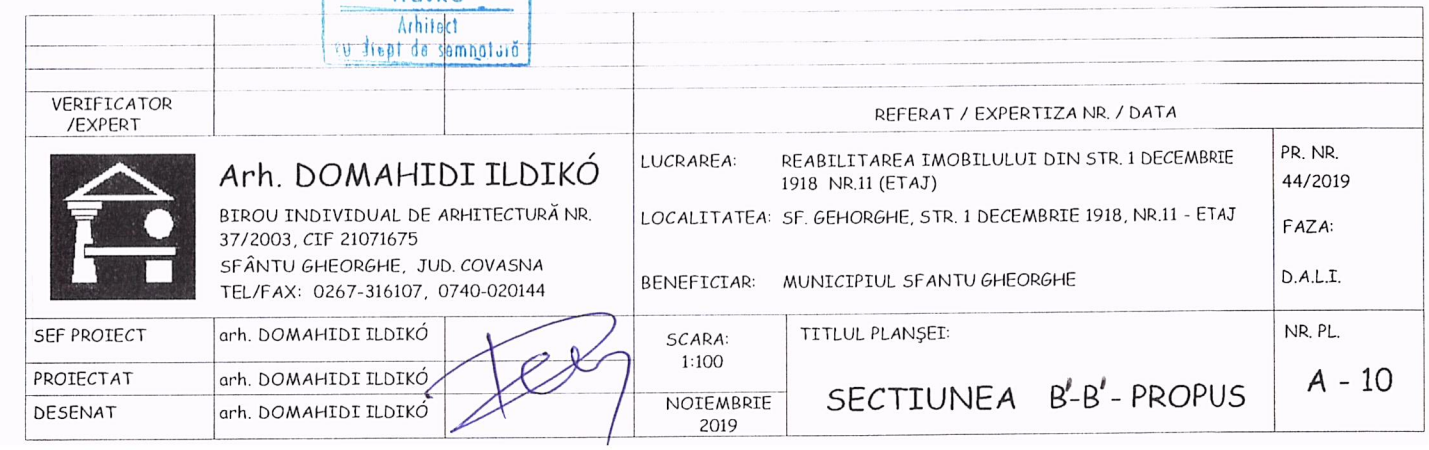 Arhitect
cu drept de semnatură
VERIFICATOR
/EXPERT
REFERAT / EXPERTIZA NR. / DATA
Arh. DOMAHIDI ILDIKÓ
BIROU INDIVIDUAL DE ARHITECTURĂ NR.
37/2003, CIF 21071675
SFÂNTU GHEORGHE, JUD. COVASNA
TEL/FAX: 0267-316107, 0740-020144
LUCRAREA: REABILITAREA IMOBILULUI DIN STR. 1 DECEMBRIE
1918 NR.11 (ETAJ)
LOCALITATEA: SF. GEHORGHE, STR. 1 DECEMBRIE 1918, NR.11 - ETAJ
BENEFICIAR: MUNICIPIUL SFANTU GHEORGHE
PR. NR.
44/2019
FAZA:
D.A.L.I.
SEF PROIECT arh. DOMAHIDI ILDIKÓ
PROIECTAT arh. DOMAHIDI ILDIKÓ
DESENAT arh. DOMAHIDI ILDIKÓ
SCARA:
1:100
NOIEMBRIE
2019
TITLUL PLANŞEI:
SECTIUNEA B'-B' - PROPUS
NR. PL.
A - 10